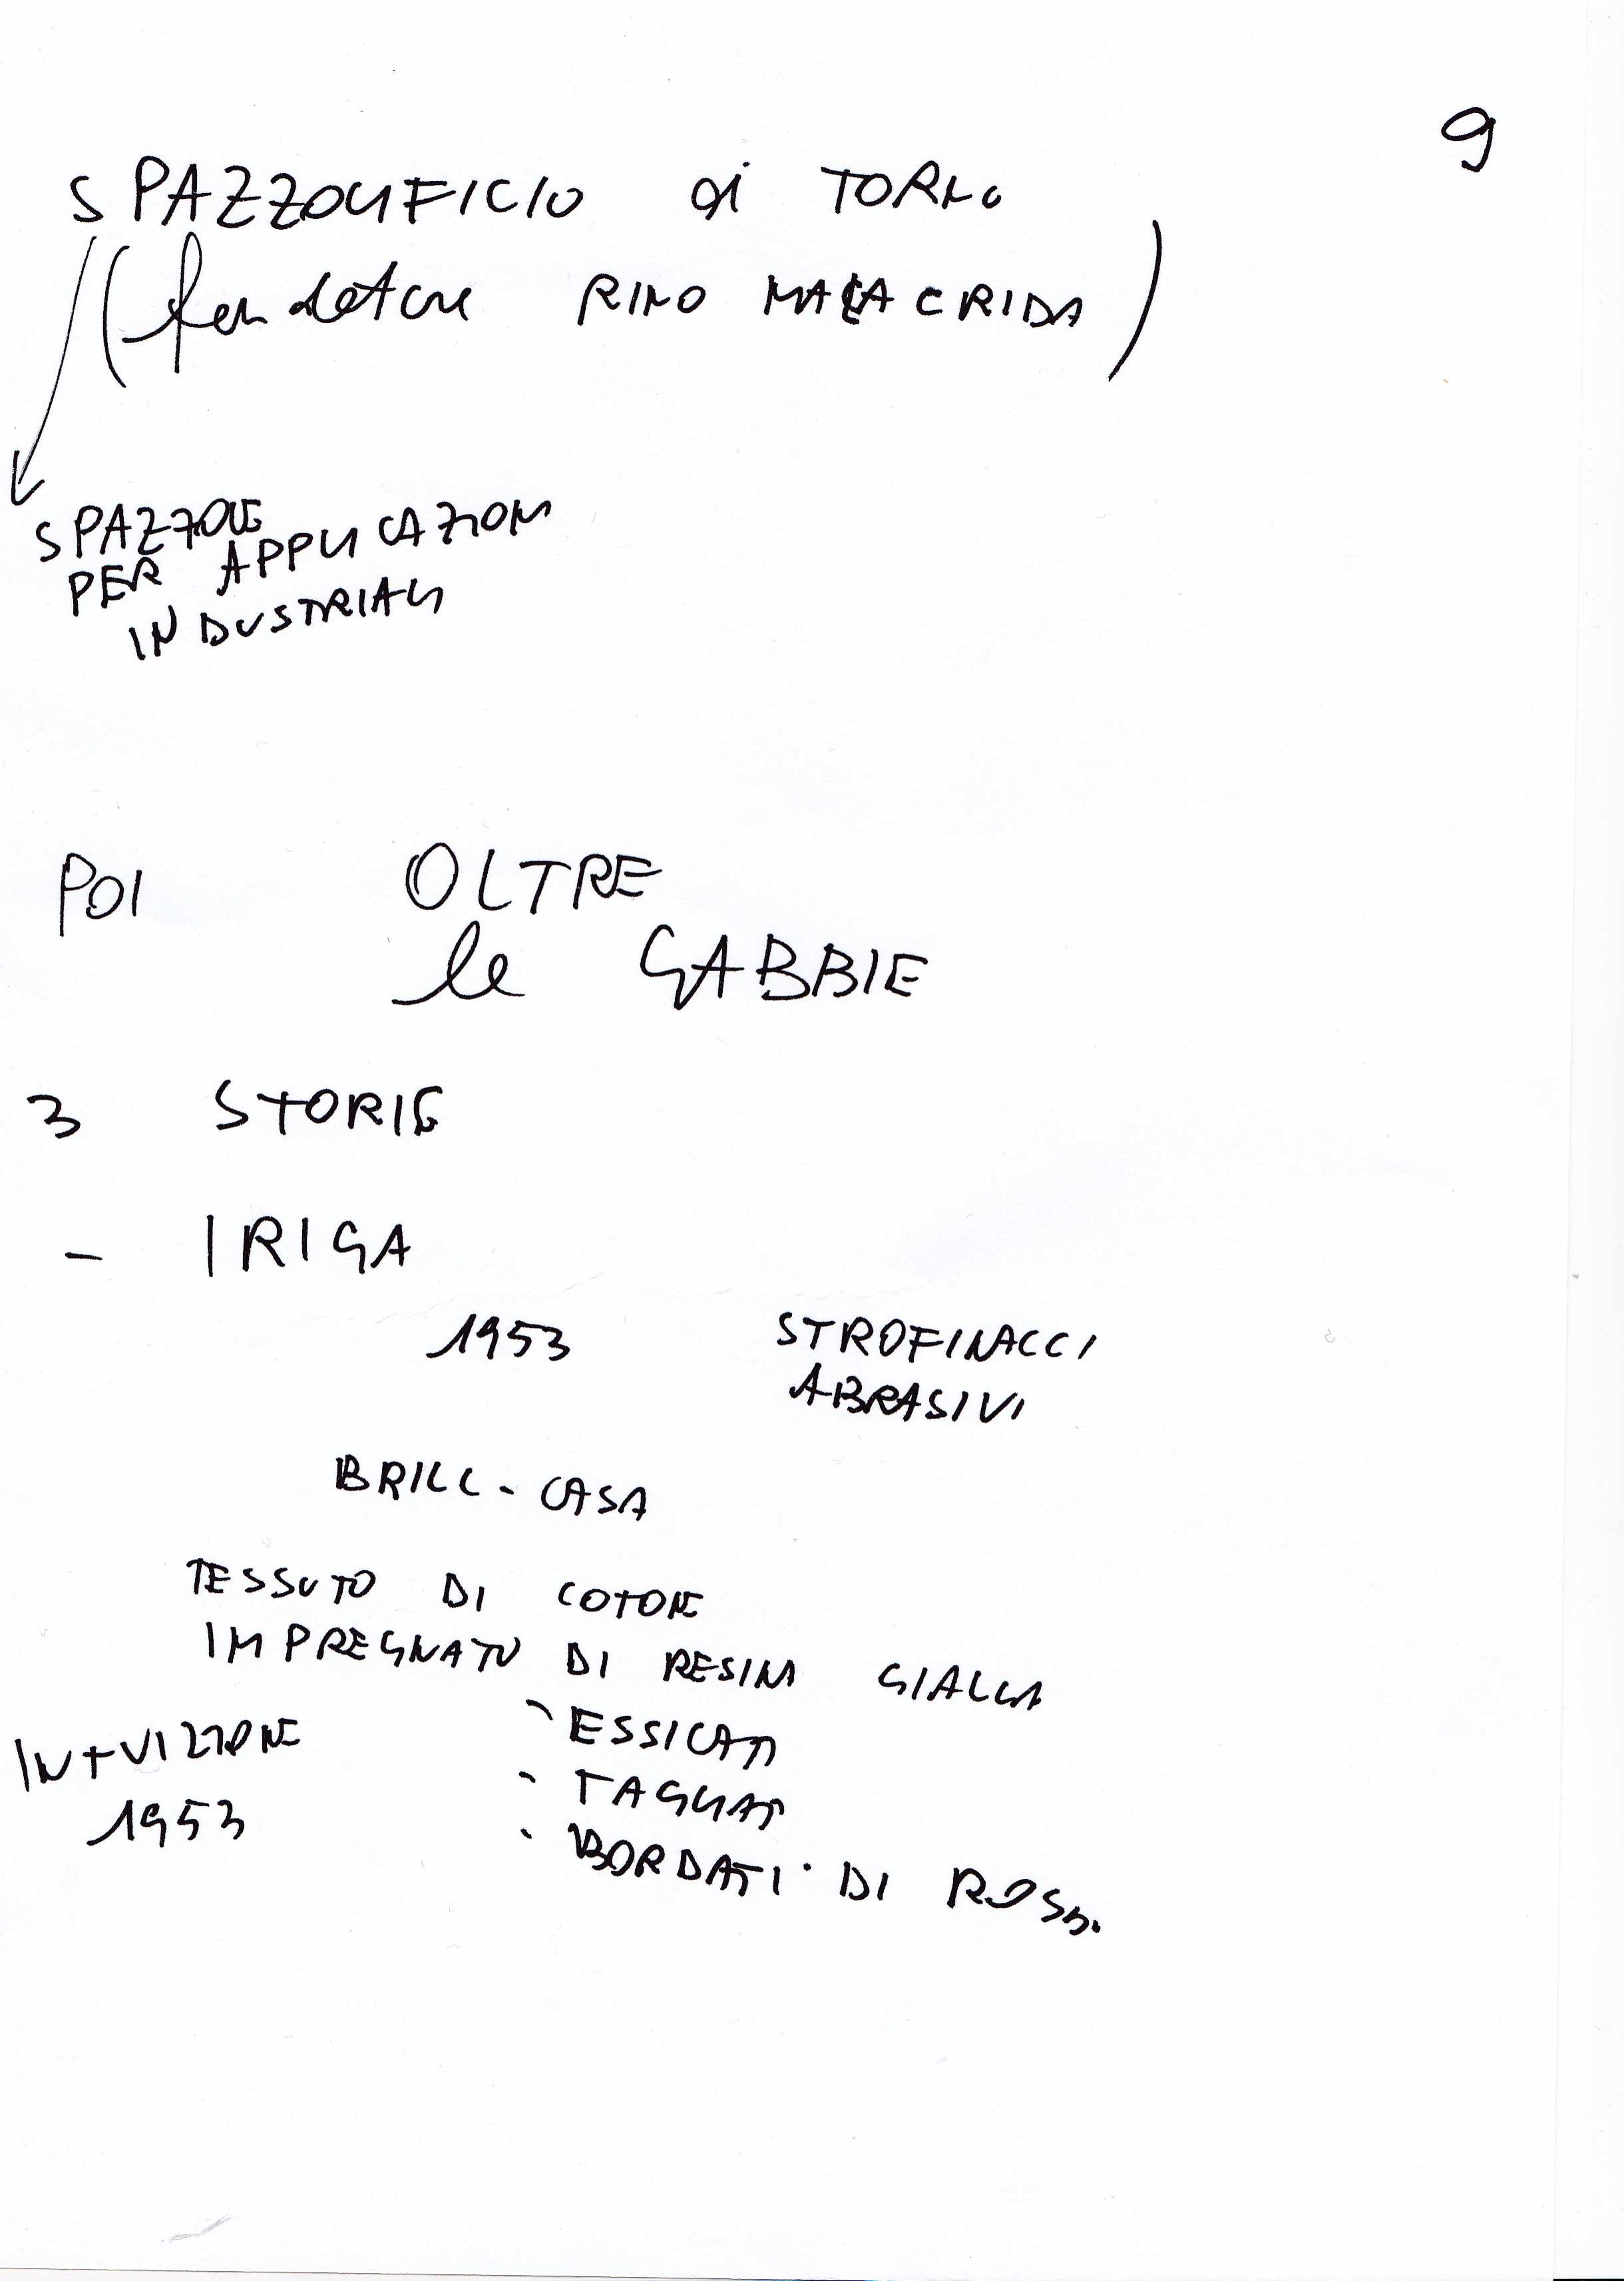 9
SPAZZOLIFICIO di TORNO
(fondatore RINO MALACRIDA)
SPAZZOLE
PER APPLICAZIONI
INDUSTRIALI
POI OLTRE
le GABBIE
3 STORIE
- IRIGA
1953 STROFINACCI
ABRASIVI
BRILL-CASA
TESSUTO DI COTONE
IMPREGNATO DI RESINA GIALLA
- ESSICATI
- TAGLIATI
- BORDATI DI ROSSO
1953